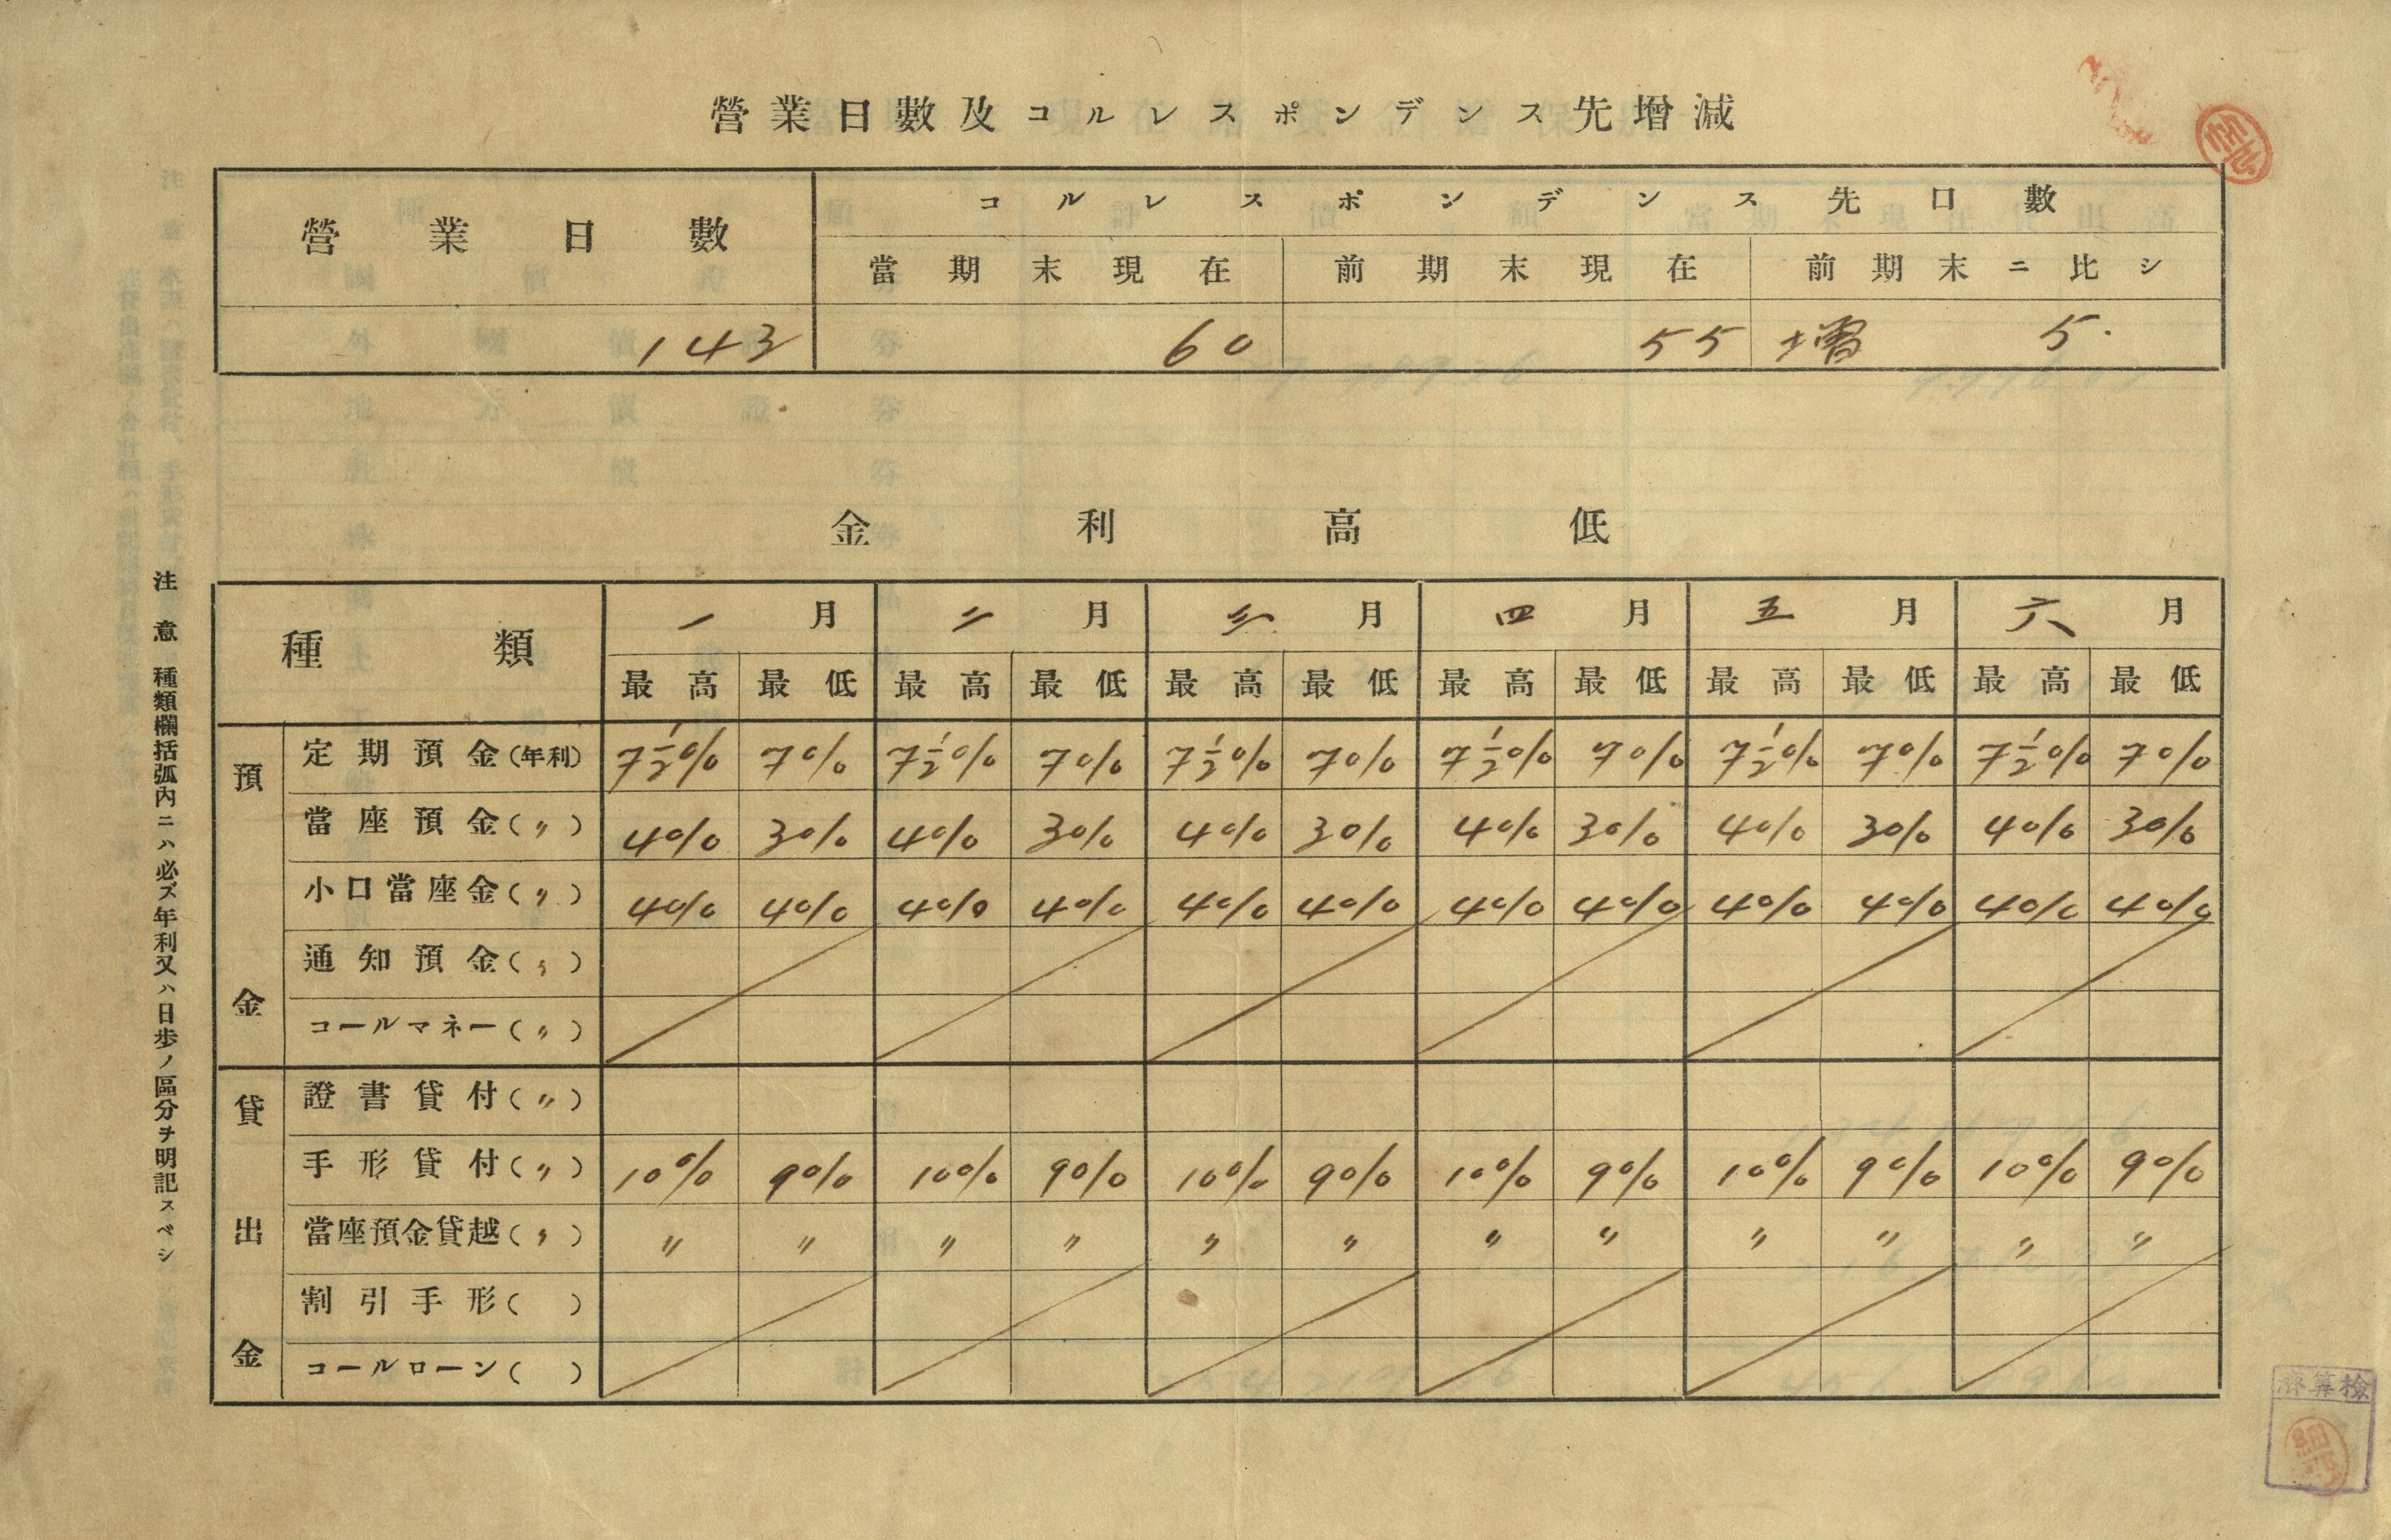 營業日數及コルレスポンデンス先增減
營業日數
コルレスポンデンス先口數
當期末現在 前期末現在 前期末ニ比シ
143 60 55 増 5.
金利高低
種類 一月 二月 三月 四月 五月 六月
最高 最低 最高 最低 最高 最低 最高 最低 最高 最低 最高 最低
預金
定期預金(年利) 7½% 7% 7½% 7% 7½% 7% 7½% 7% 7½% 7% 7½% 7%
當座預金(〃) 4% 3% 4% 3% 4% 3% 4% 3% 4% 3% 4% 3%
小口當座金(〃) 4% 4% 4% 4% 4% 4% 4% 4% 4% 4% 4% 4%
通知預金(〃)
コールマネー(〃)
貸出金
證書貸付(〃)
手形貸付(〃) 10% 9% 10% 9% 10% 9% 10% 9% 10% 9% 10% 9%
當座預金貸越(〃) 〃 〃 〃 〃 〃 〃 〃 〃 〃 〃 〃 〃
割引手形( )
コールローン( )
注意 種類欄括弧内ニハ必ズ年利又ハ日歩ノ區分ヲ明記スベシ
檢算濟